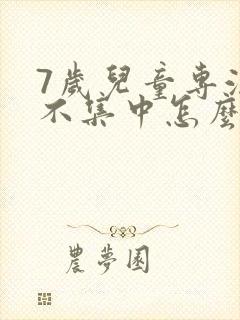 7歲兒童專注
不集中怎麼
農夢園